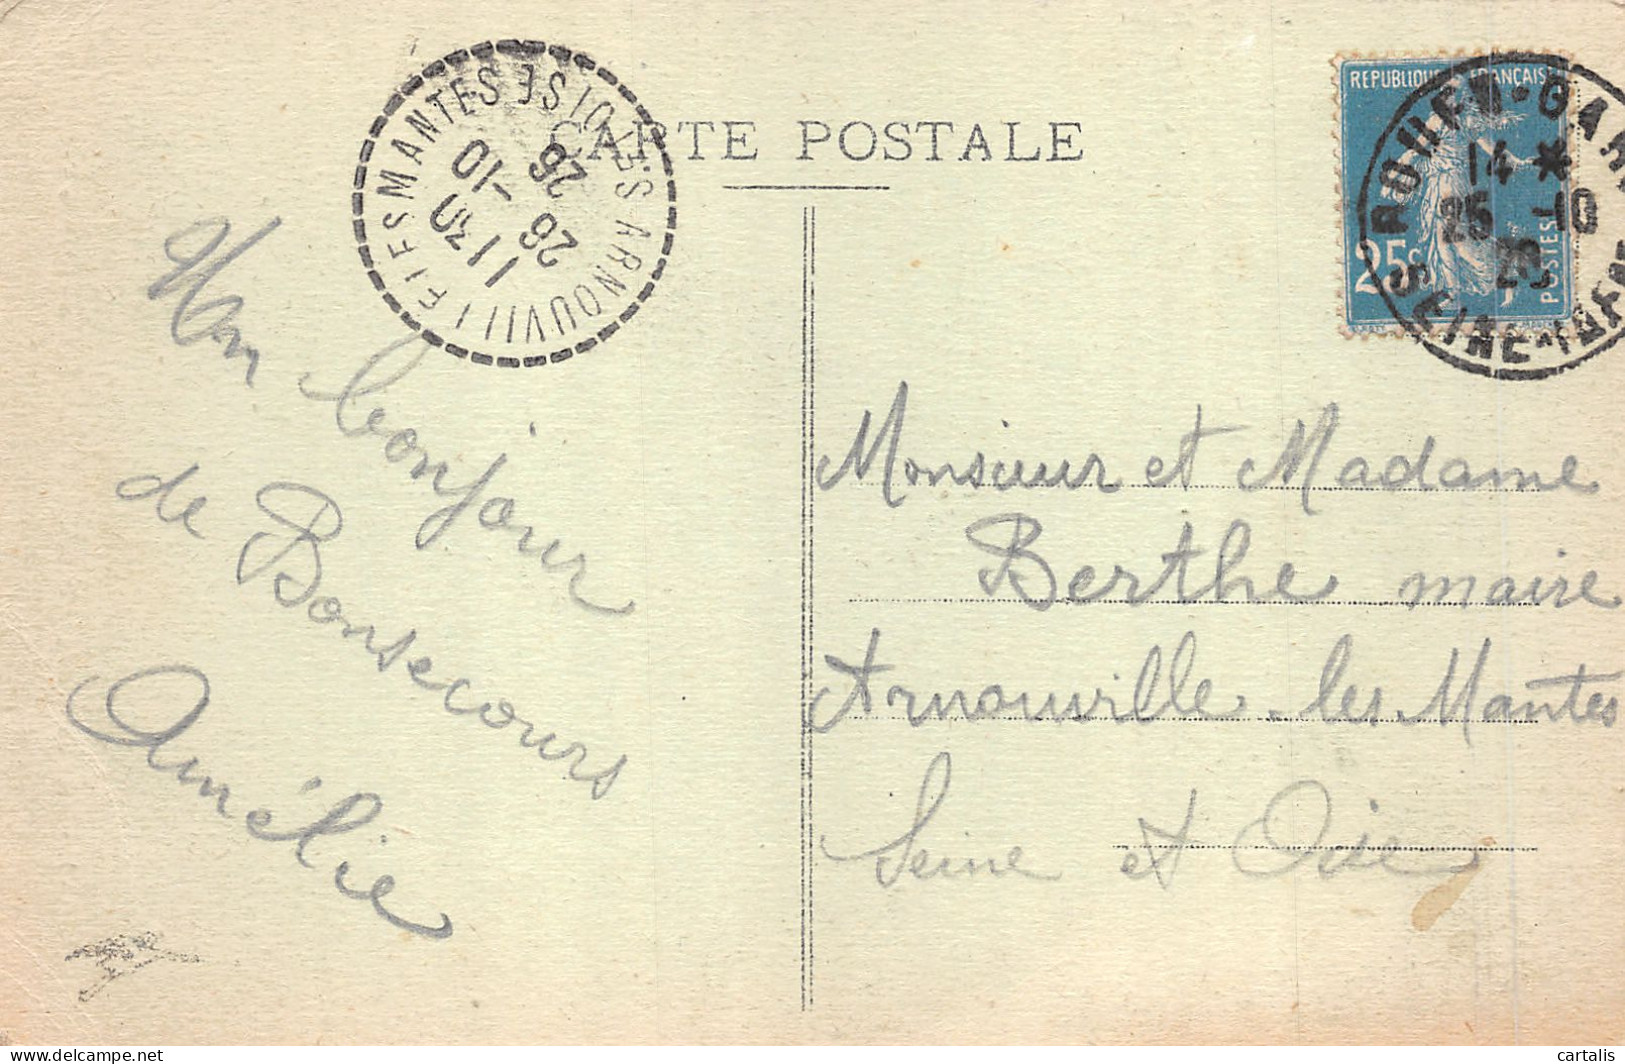 CARTE POSTALE
ARNOUVILLE LES MANTES
S.-ET-OISE
11 30
26 -10
26
REPUBLIQUE FRANÇAISE
25c
POSTES
ROUEN-GARE
14 *
25 -10
26
SEINE-INFRE
Un bonjour
de Bonsecours
Amélie
Monsieur et Madame
Berthe maire
Arnouville-les-Mantes
Seine et Oise
delcampe.net
cartalis